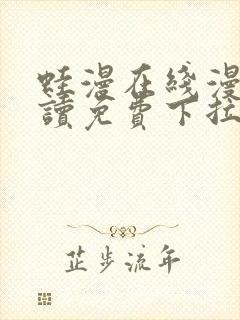 蛙漫在线漫
讀免費下拉
芷步流年